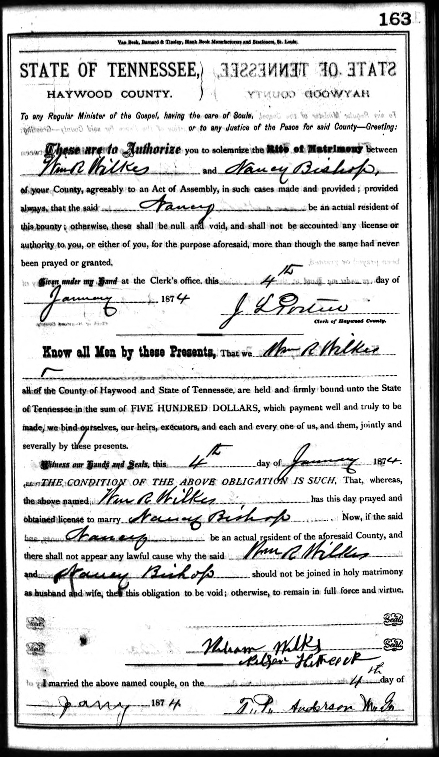 163
Van Beek, Barnard & Tinsley, Blank Book Manufacturers and Stationers, St. Louis.
STATE OF TENNESSEE,
HAYWOOD COUNTY.
To any Regular Minister of the Gospel, having the care of Souls,
or to any Justice of the Peace for said County—Greeting:
These are to Authorize you to solemnize the Rite of Matrimony between
Wm R Wilkes and Nancy Bishop,
of your County, agreeably to an Act of Assembly, in such cases made and provided; provided
always, that the said Nancy be an actual resident of
this county; otherwise, these shall be null and void, and shall not be accounted any license or
authority to you, or either of you, for the purpose aforesaid, more than though the same had never
been prayed or granted.
Given under my Hand at the Clerk's office, this 4th day of
January 1874
J L
Clerk of Haywood County.
Know all Men by these Presents, That we Wm R Wilkes
all of the County of Haywood and State of Tennessee, are held and firmly bound unto the State
of Tennessee in the sum of FIVE HUNDRED DOLLARS, which payment well and truly to be
made, we bind ourselves, our heirs, executors, and each and every one of us, and them, jointly and
severally by these presents.
Witness our Hands and Seals, this 4th day of January 1874.
THE CONDITION OF THE ABOVE OBLIGATION IS SUCH, That, whereas,
the above named Wm R Wilkes has this day prayed and
obtained license to marry Nancy Bishop Now, if the said
Nancy be an actual resident of the aforesaid County, and
there shall not appear any lawful cause why the said Wm R Wilkes
and Nancy Bishop should not be joined in holy matrimony
as husband and wife, then this obligation to be void; otherwise, to remain in full force and virtue.
Seal
William Wilks Seal
I married the above named couple, on the 4th day of
Jany 1874 T. P. Anderson